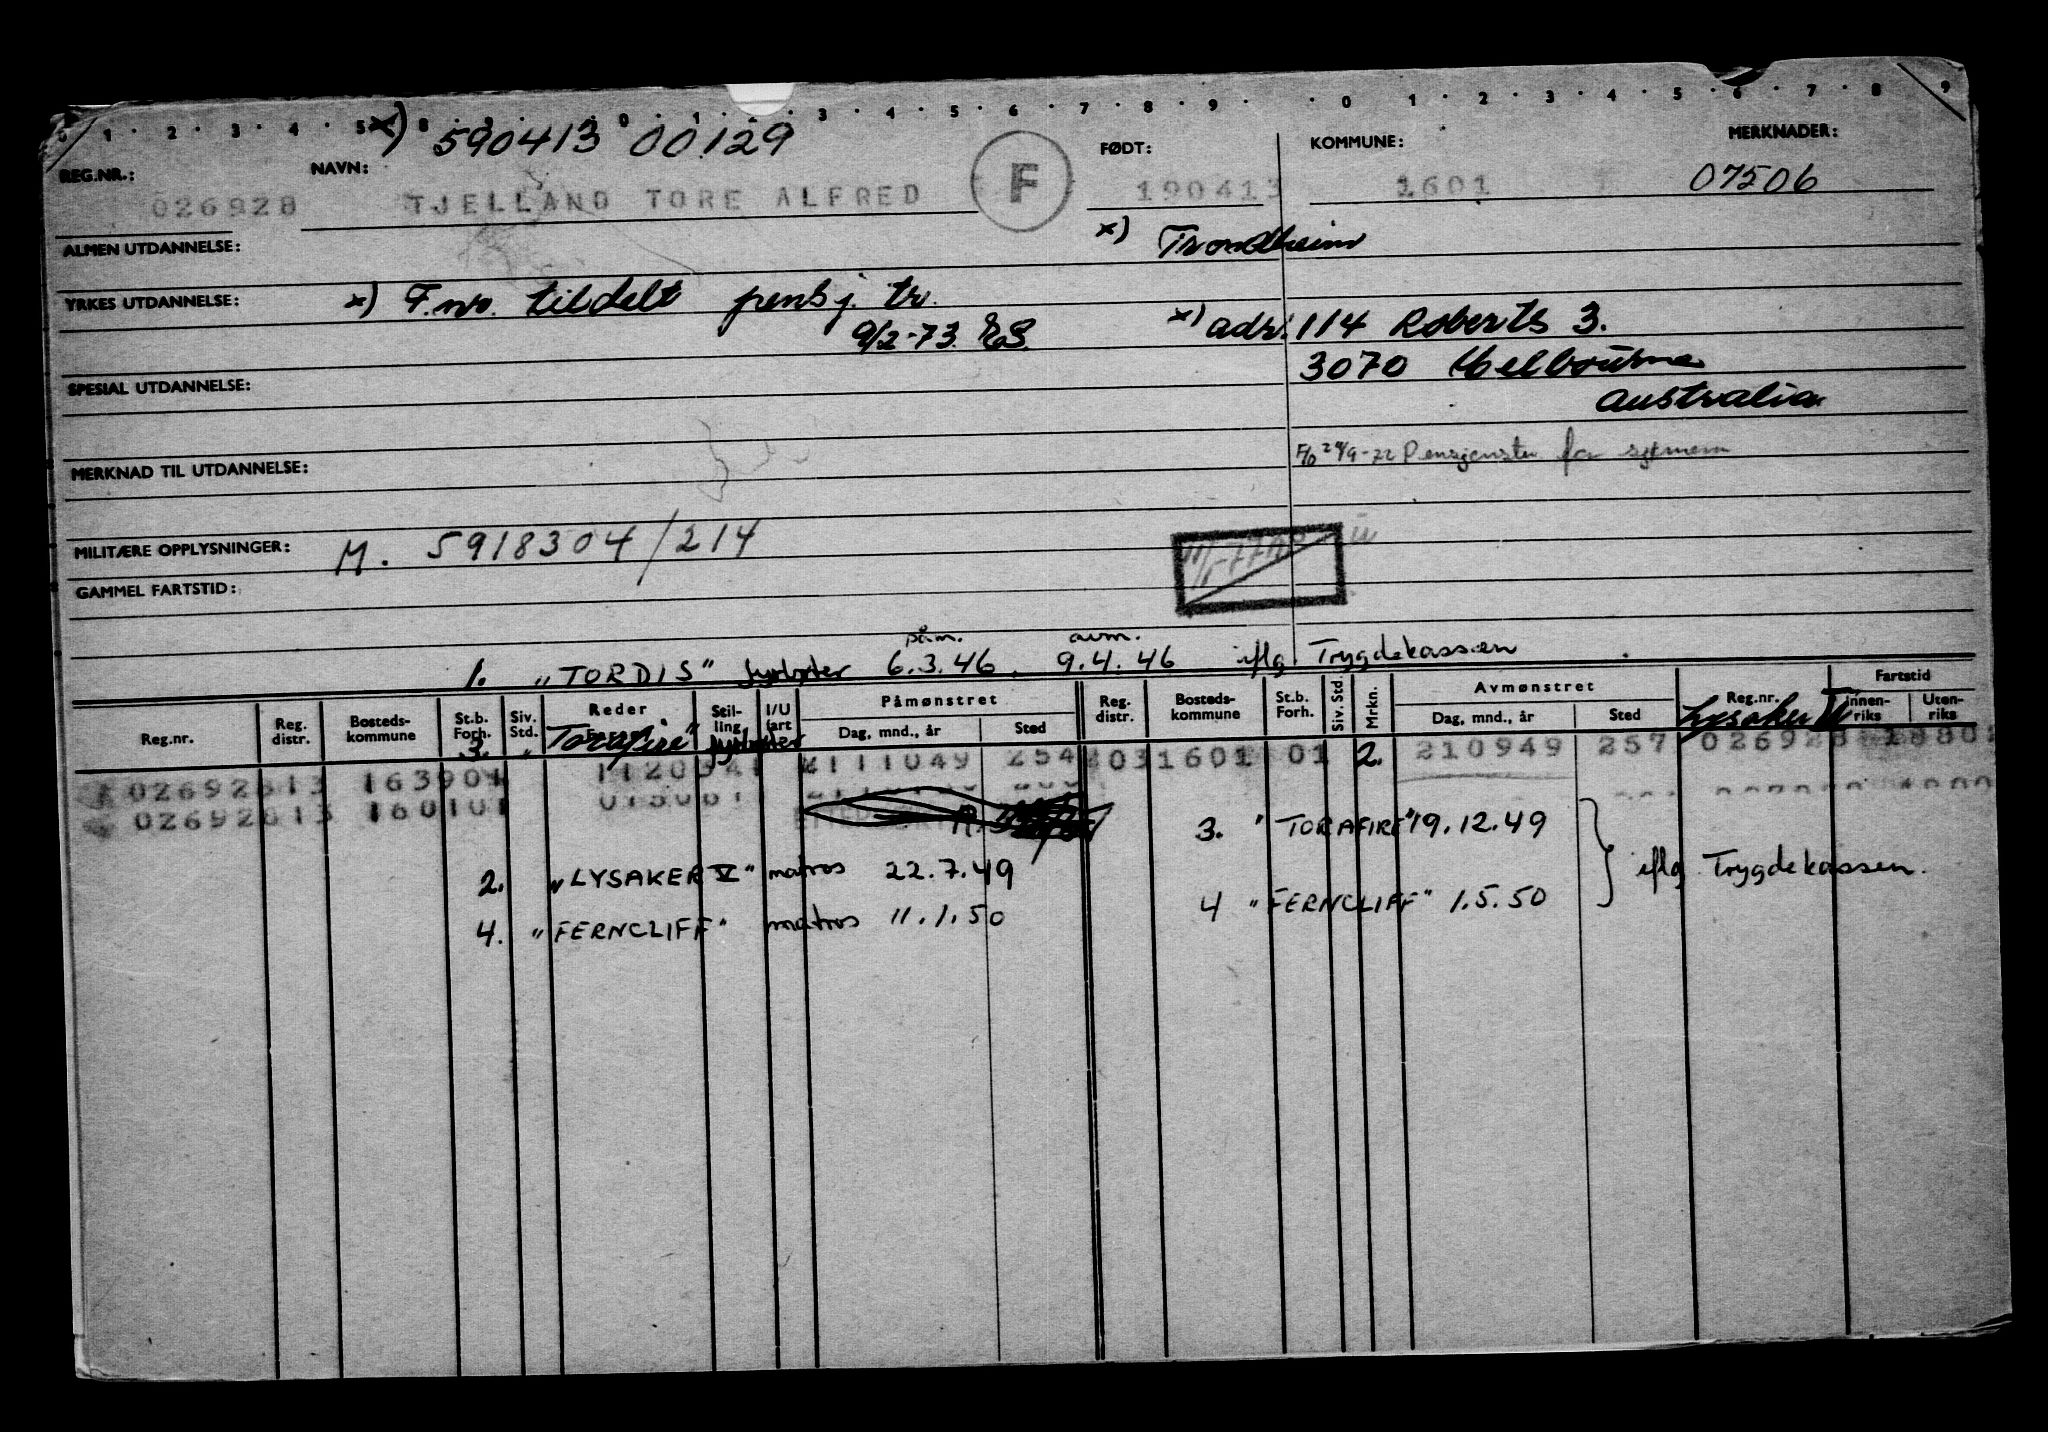 0 1 2 3 4 5 8 0 1 3 4 5 6 7 8 9 0 1 2 3 4 5 6 7 8 9
x) 590413 00129
REG.NR.: NAVN: F FØDT: KOMMUNE: MERKNADER:
026928 TJELLAND TORE ALFRED 190413 1601 07506
ALMEN UTDANNELSE: x) Trondheim
YRKES UTDANNELSE: x) F.nr. tildelt pensj. tr. x) adr. 114 Roberts 3.
9/2-73.
3070 Melbourne
SPESIAL UTDANNELSE: Australia
MERKNAD TIL UTDANNELSE:
MILITÆRE OPPLYSNINGER: M. 5918304/214
GAMMEL FARTSTID:
påm. avm.
1. "TORDIS" fyrbøter 6.3.46. 9.4.46 iflg. Trygdekassen
Reg.nr. Reg. distr. Bosteds-kommune St.b. Forh. Siv. Std. Reder Stil-ling I/U fart Påmønstret Dag, mnd., år Sted Reg. distr. Bosteds-kommune St.b. Forh. Siv. Std. Mrkn. Avmønstret Dag, mnd., år Sted Reg.nr. Fartstid Innen-riks Uten-riks
3. "Torafire" fyrbøter Lysaker V
02692813 163901 2111049 254 031601 01 2. 210949 257 026928
02692813 160101
3. "TORAFIRE" 19.12.49
2. "LYSAKER V" matros 22.7.49 iflg. Trygdekassen.
4. "FERNCLIFF" matros 11.1.50 4 "FERNCLIFF" 1.5.50